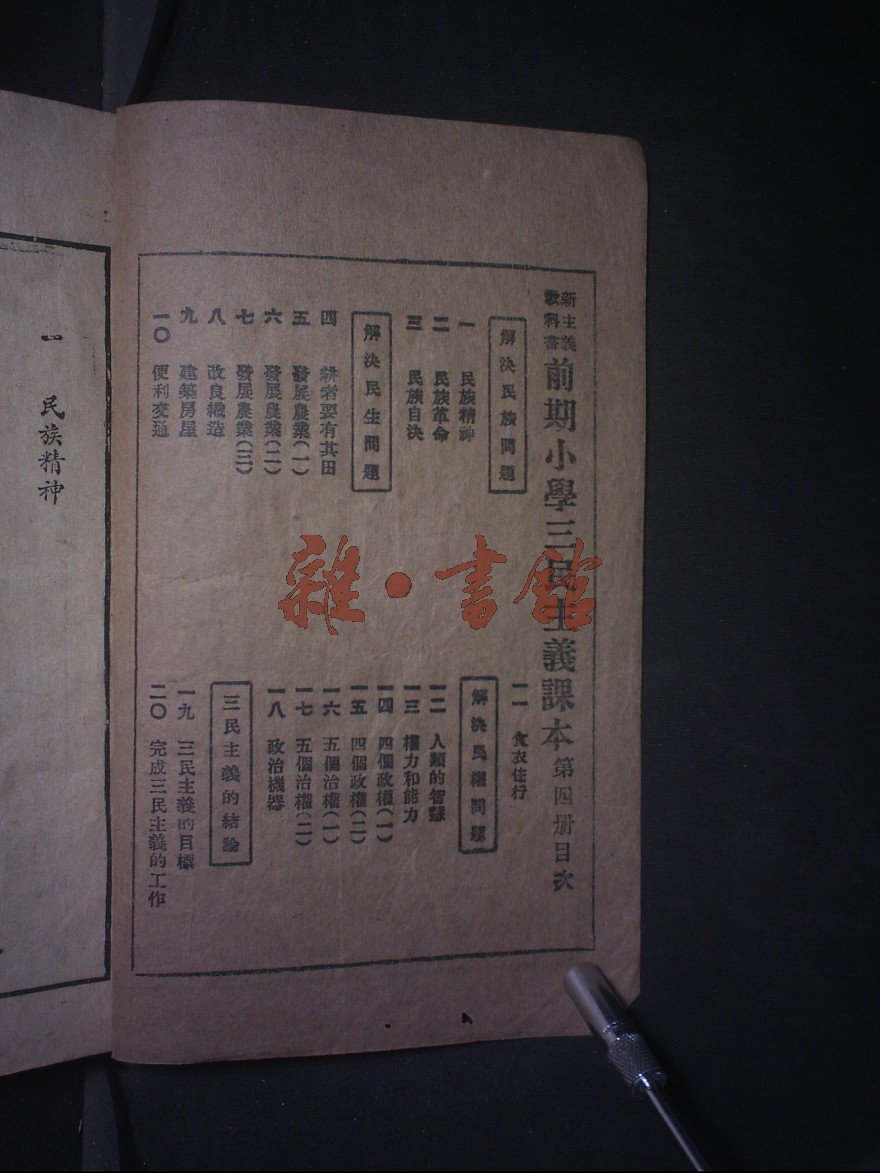 新主義
教科書
前期小學三民主義課本 第四册目次
解決民族問題
一 民族精神
二 民族革命
三 民族自決
解決民生問題
四 耕者要有其田
五 發展農業(一)
六 發展農業(二)
七 發展農業(三)
八 改良織造
九 建築房屋
一〇 便利交通
一一 食衣住行
解決民權問題
一二 人類的智慧
一三 權力和能力
一四 四個政權(一)
一五 四個政權(二)
一六 五個治權(一)
一七 五個治權(二)
一八 政治機器
三民主義的結論
一九 三民主義的目標
二〇 完成三民主義的工作
一 民族精神
雜·書館